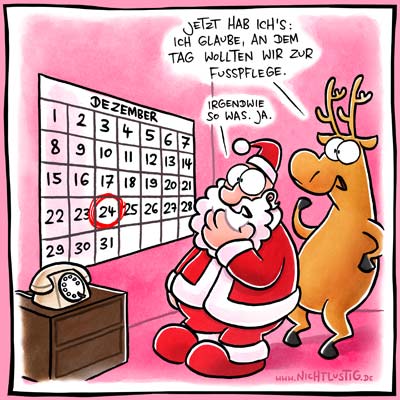 JETZT HAB ICH'S:
ICH GLAUBE, AN DEM
TAG WOLLTEN WIR ZUR
FUSSPFLEGE.
IRGENDWIE
SO WAS. JA.
DEZEMBER
1 2 3 4 5 6 7
8 9 10 11 12 13 14
15 16 17 18 19 20 21
22 23 24 25 26 27 28
29 30 31
WWW.NICHTLUSTIG.DE